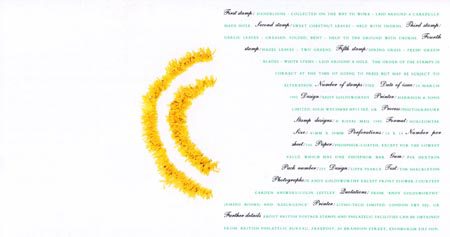 First stamp/ DANDELIONS - COLLECTED ON THE WAY TO WORK - LAID AROUND A CAREFULLY
MADE HOLE. Second stamp/ SWEET CHESTNUT LEAVES - HELD WITH THORNS. Third stamp/
GRASS LEAVES - CREASED, SOILED, BENT - HELD TO THE GROUND WITH THORNS. Fourth
stamp/ HAZEL LEAVES - TWO GREENS. Fifth stamp/ SPRING GRASS - FRESH GREEN
BLADES - WHITE STEMS - LAID AROUND A HOLE. THE ORDER OF THE STAMPS IS
CORRECT AT THE TIME OF GOING TO PRESS BUT MAY BE SUBJECT TO
ALTERATION. Number of stamps/ Date of issue/ MARCH
Design/ ANDY GOLDSWORTHY. Printer/ HARRISON & SONS
LIMITED, HIGH WYCOMBE Process/ PHOTOGRAVURE
Stamp designs/ ROYAL MAIL Format/
Size/ 41MM X 30MM Perforations/ Number per
sheet/ Paper/ PHOSPHOR-COATED, EXCEPT FOR THE LOWEST
VALUE WHICH HAS ONE PHOSPHOR BAR. Gum/ PVA DEXTRIN
Pack number/ Design/ Text/
Photographs/ ANDY GOLDSWORTHY EXCEPT FRONT COVER, COURTESY
GARDEN ANSWERS/COLIN LEFTLEY Quotations/ FROM 'ANDY GOLDSWORTHY'
AND 'RESURGENCE' Printer/ LITHO-TECH LIMITED, LONDON
Further details ABOUT BRITISH POSTAGE STAMPS AND PHILATELIC FACILITIES CAN BE OBTAINED
FROM BRITISH PHILATELIC BUREAU, FREEPOST, 20 BRANDON STREET, EDINBURGH